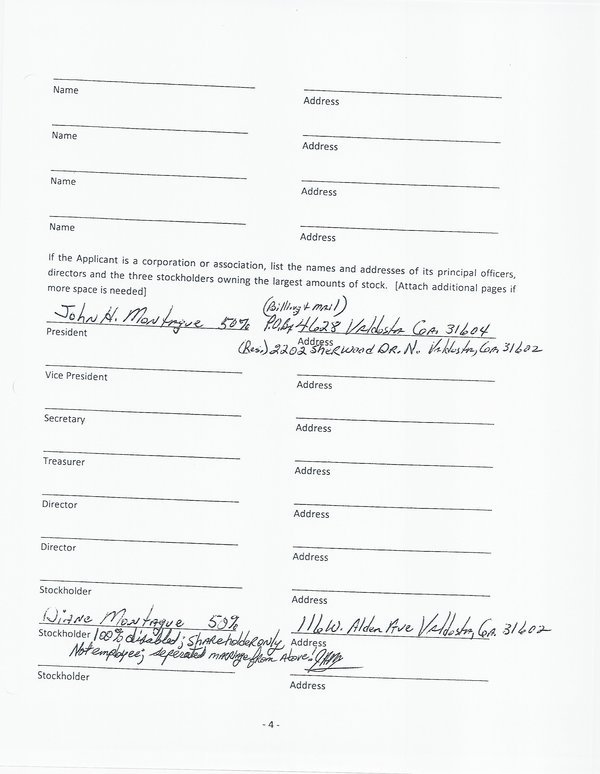 Name Address
Name Address
Name Address
Name Address
If the Applicant is a corporation or association, list the names and addresses of its principal officers,
directors and the three stockholders owning the largest amounts of stock. [Attach additional pages if
more space is needed]
(Billing & mail)
John H. Montague 50% P.O. Bx 4628 Valdosta Ga. 31604
President Address
(Res.) 2202 Sherwood DR. N. Valdosta, Ga. 31602
Vice President Address
Secretary Address
Treasurer Address
Director Address
Director Address
Stockholder Address
Diane Montague 50% 116 W. Alden Ave Valdosta, Ga. 31602
Stockholder 100% disabled; Shareholder only Address
Not employee; seperated marriage from Above!
Stockholder Address
- 4 -